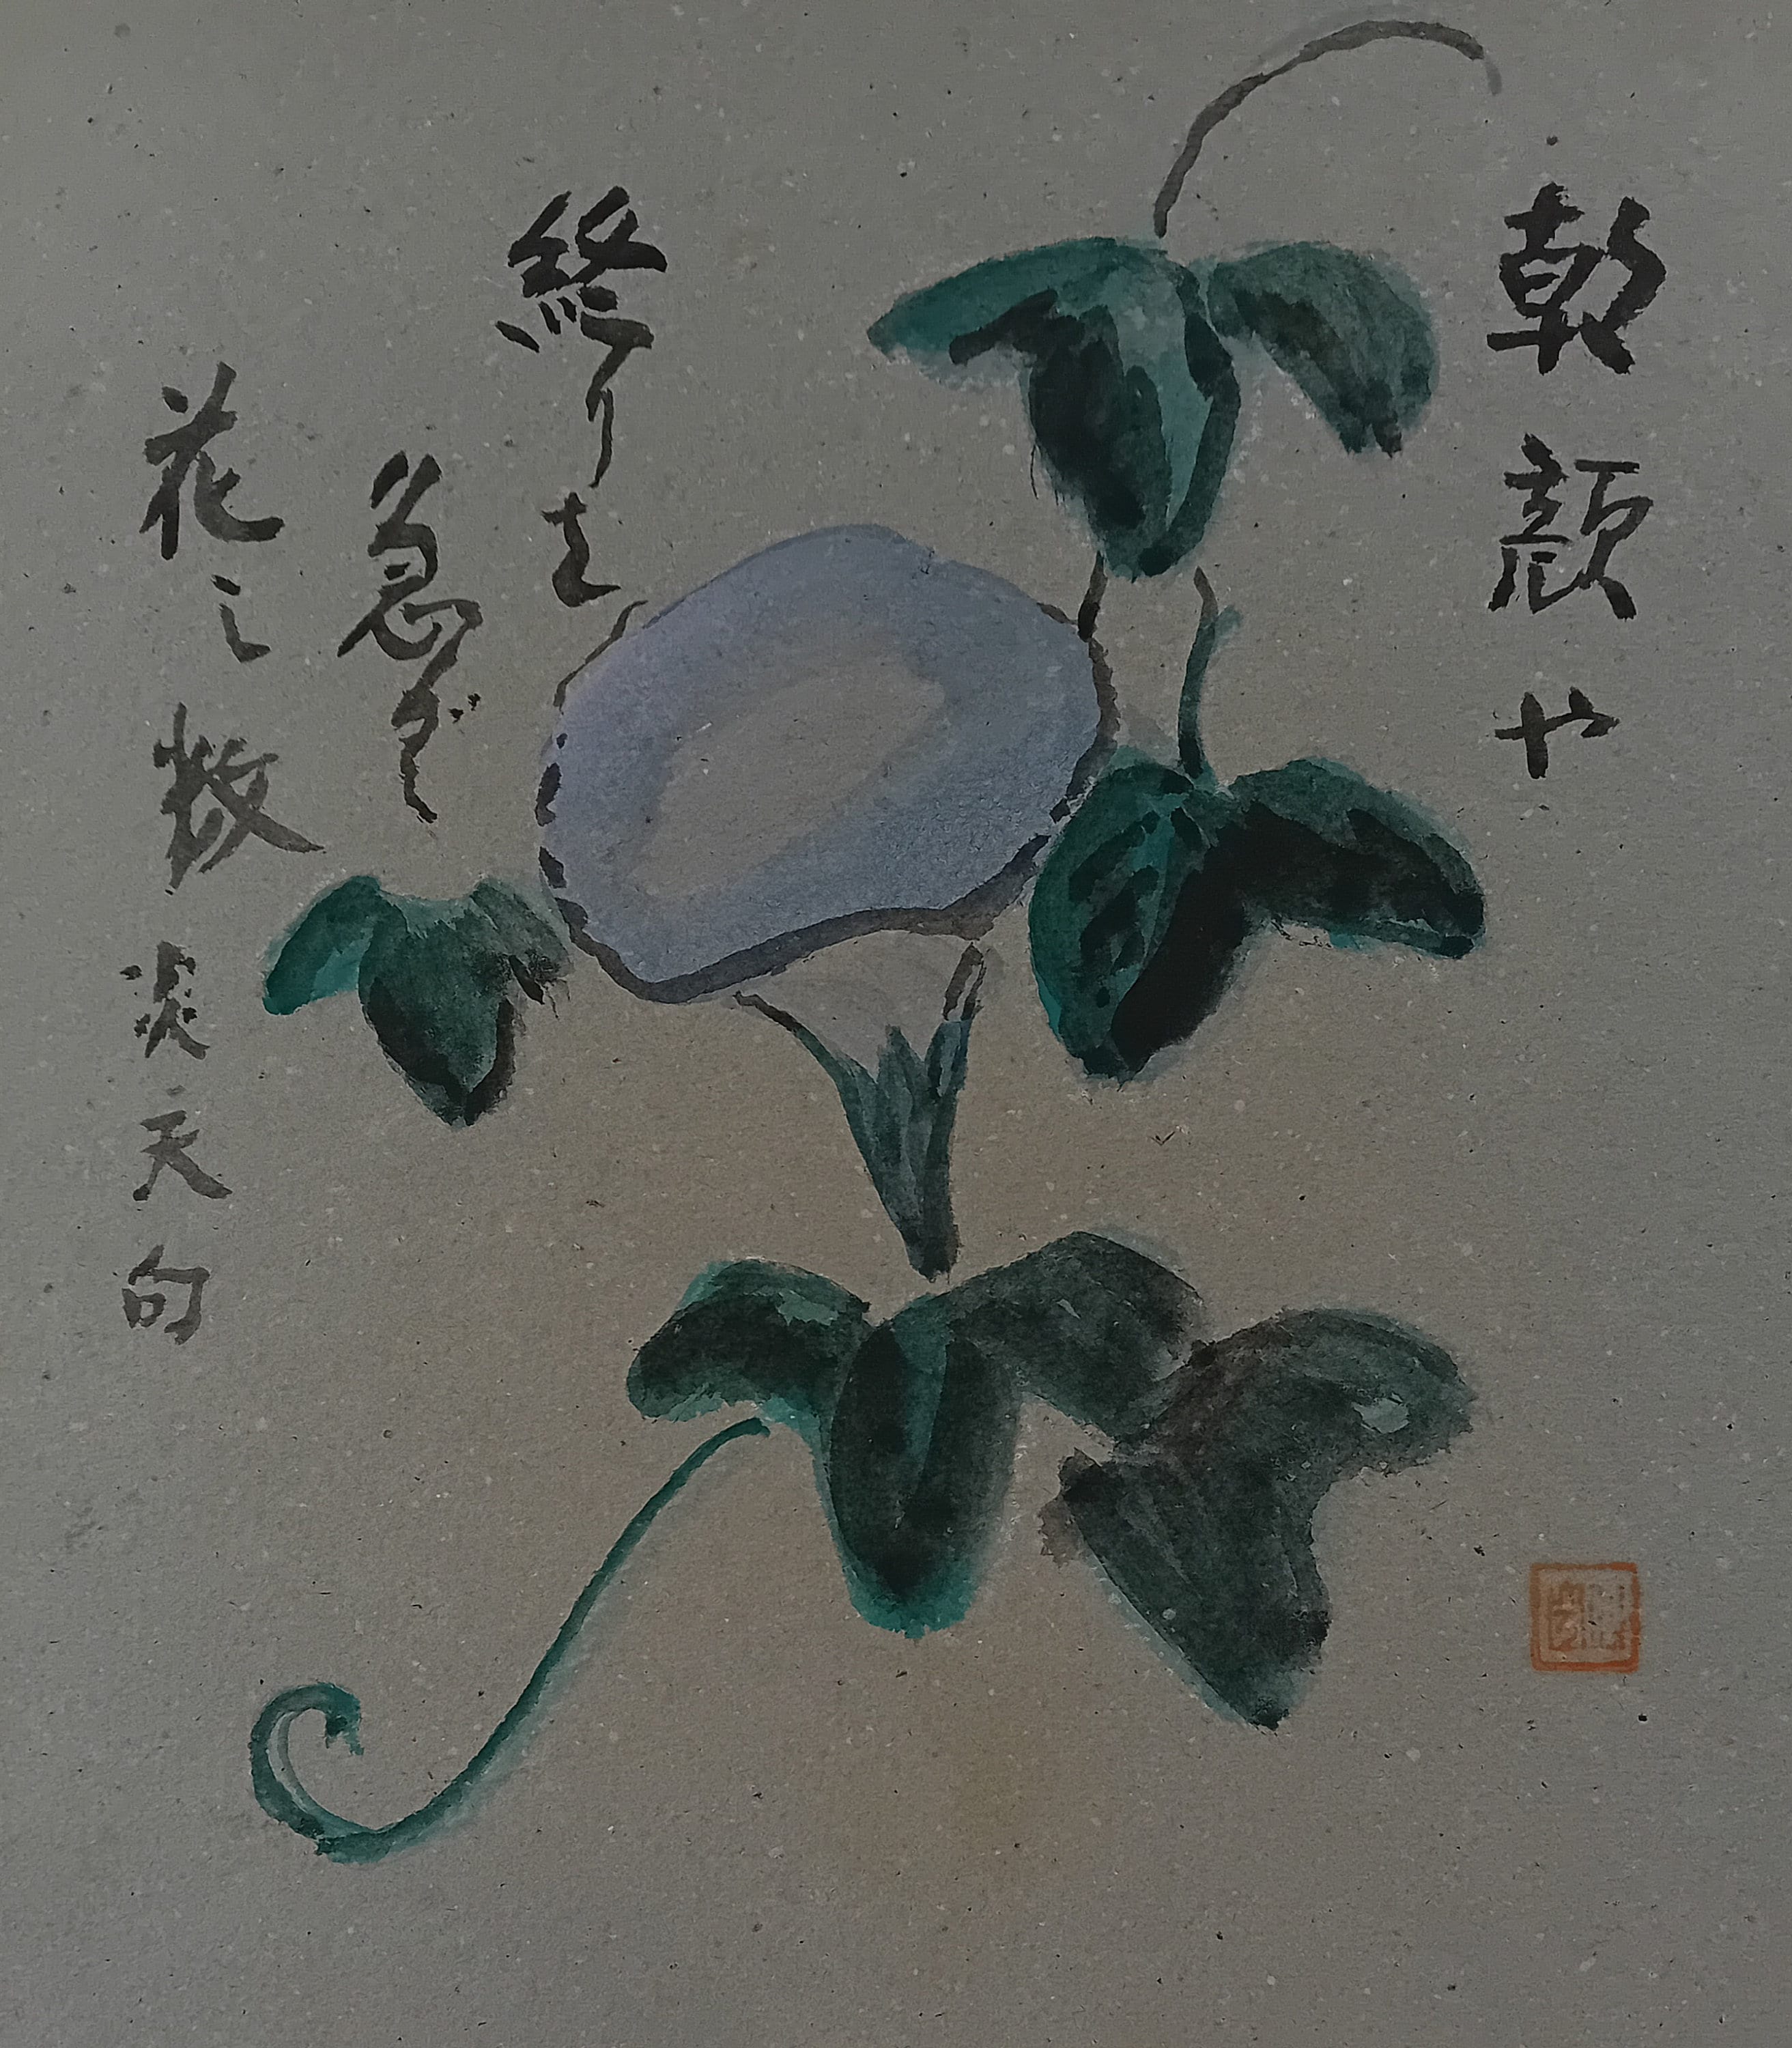 朝顔や
終りを
急ぐ
花之数 炎天句